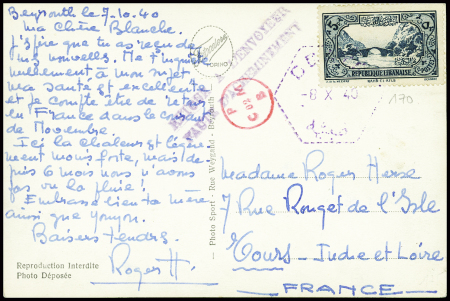 Beyrouth le 7.10.40
Ma chère Blanche.
J'espère que tu as reçu de
mes nouvelles. Ne t'inquiète
nullement à mon sujet
ma santé est excellente
et je compte être de retour
en France dans le courant
de Novembre.
Ici la chaleur est légère
ment moins forte, mais de-
puis 6 mois nous n'avons
pas vu la pluie!
Embrasse bien ta mère
ainsi que Yonyon.
Baisers tendres.
Roger H.
Reproduction Interdite
Photo Déposée
Photo Sport - Rue Weygand - Beyrouth
RETOUR A L'ENVOYEUR
REPUBLIQUE LIBANAISE
-8 X 40
170
Madame Roger Herse
7 Rue Rouget de l'Isle
Tours - Indre et Loire
FRANCE